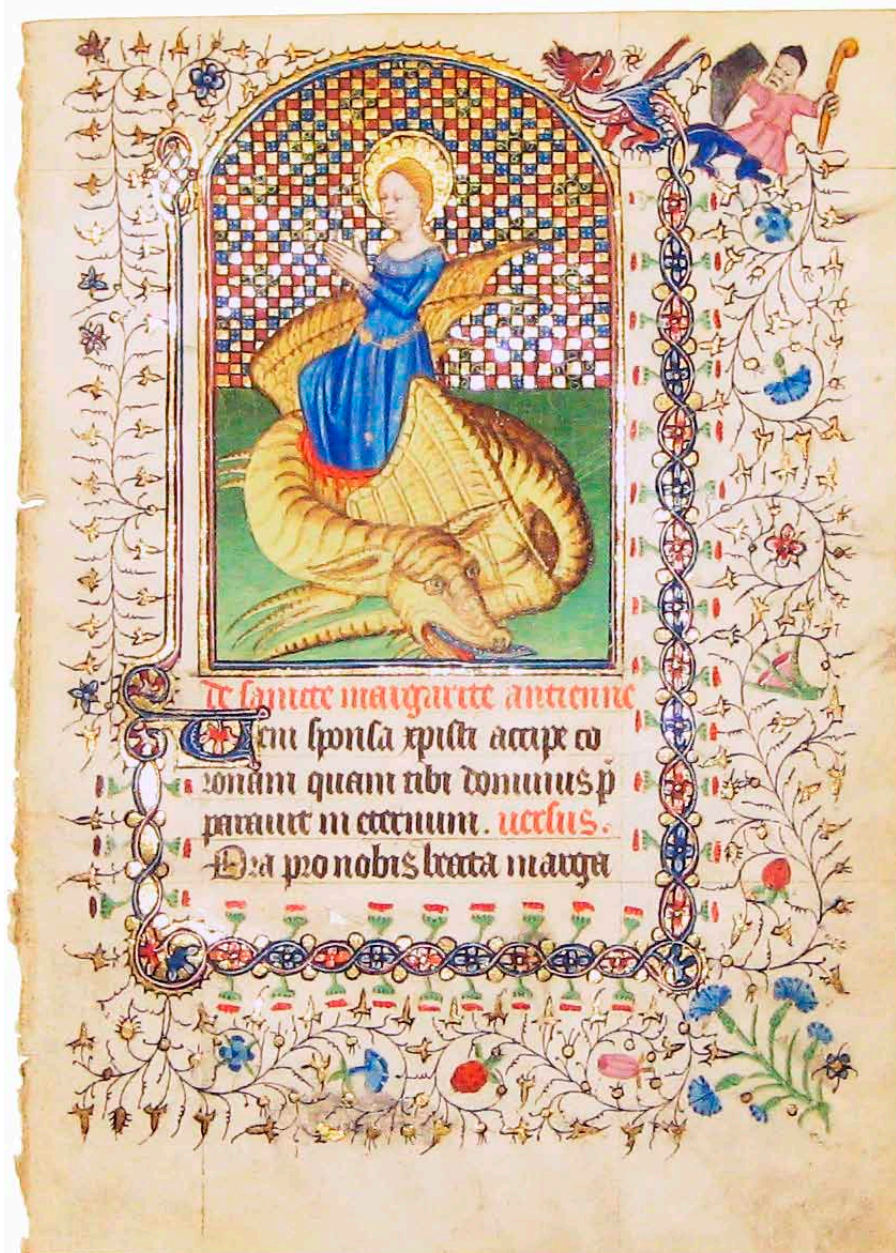 de sancte margarite antienne
Veni sponsa xpisti accipe co
ronam quam tibi dominus p̄
parauit in eternum. uersus.
Ora pro nobis beata marga